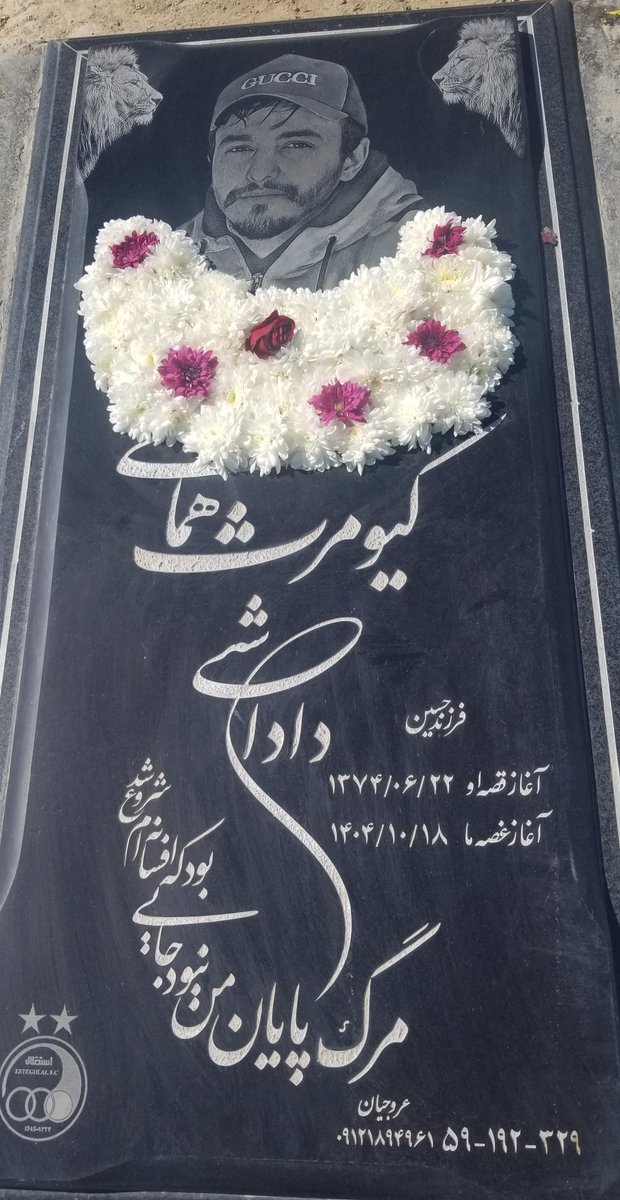 GUCCI
کیومرث همای
داداشی
فرزند حسین
آغاز قصه او ۱۳۷۴/۰۶/۲۲
آغاز غصه ما ۱۴۰۴/۱۰/۱۸
مرگ پایان من نبود جایی
بود که افسانه ام شروع شد
استقلال
ESTEGHLAL F.C
عروجیان
۰۹۱۲۱۸۹۴۹۶۱ ۵۹-۱۹۲-۳۲۹